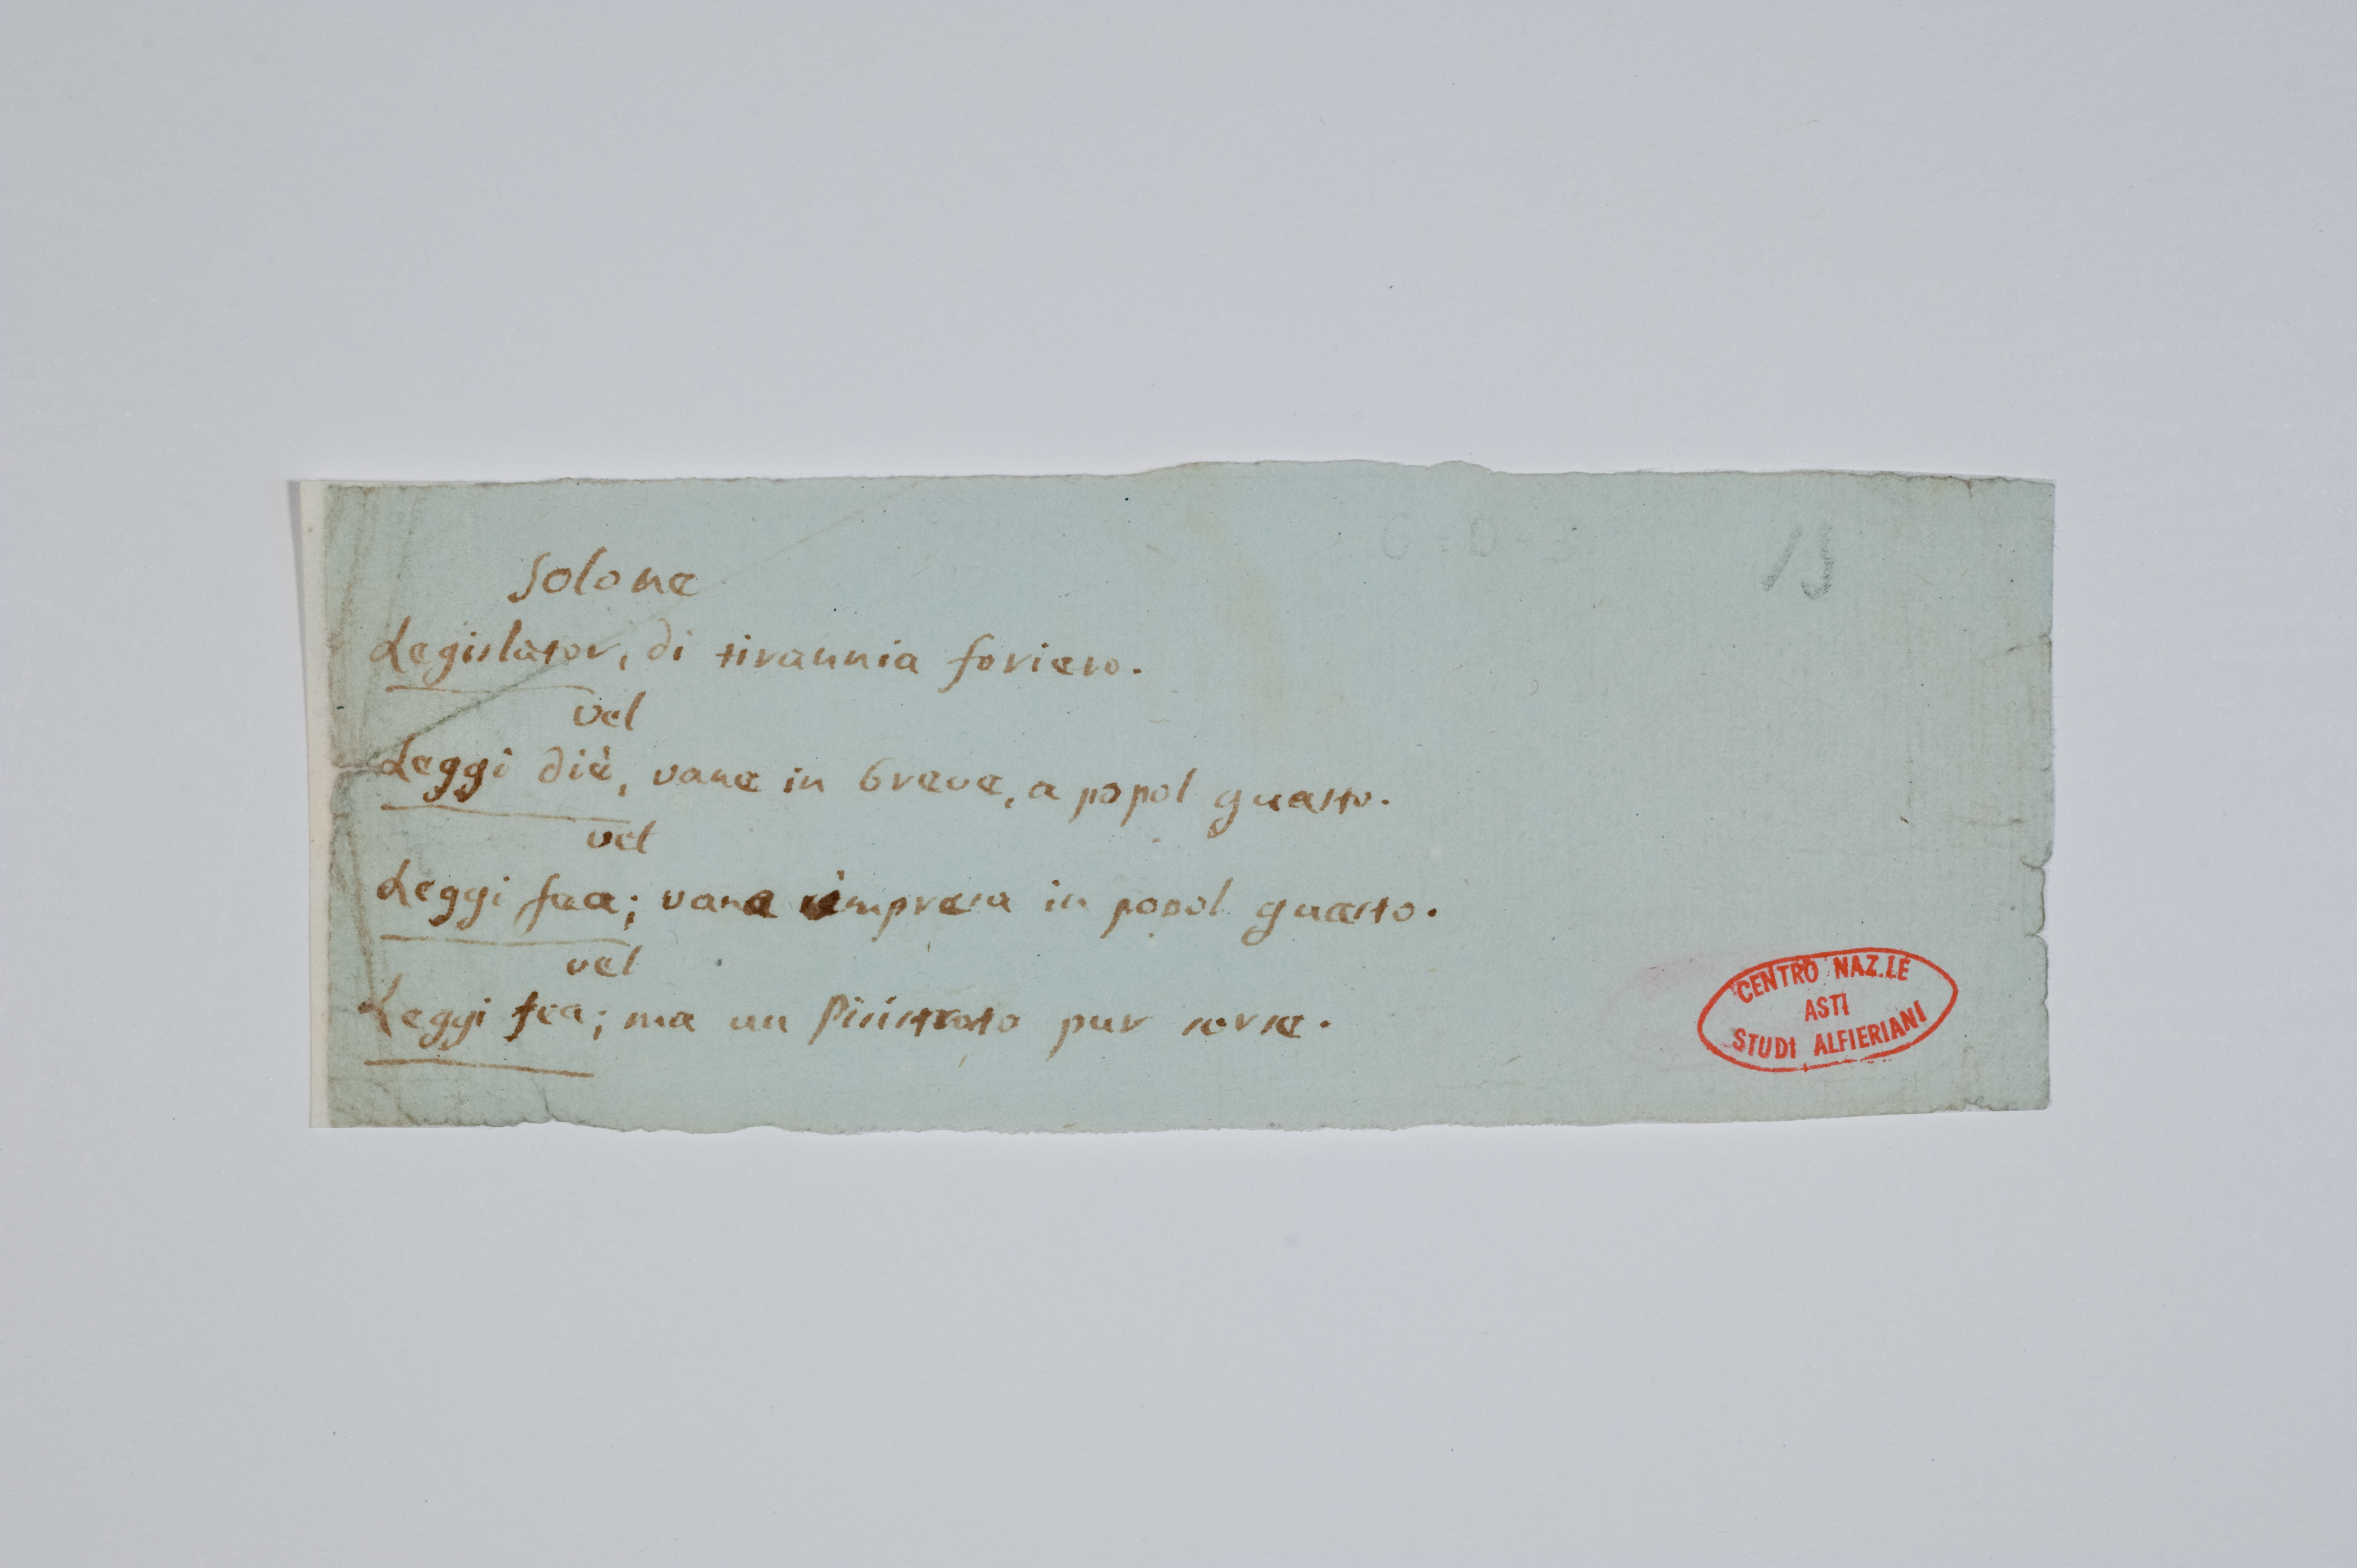 C-D-3
15
Solone
Legislator, di tirannia foriero.
vel
Leggi diè, vane in breve, a popol guasto.
vel
Leggi fea; vana impresa in popol guasto.
vel
Leggi fea; ma un Pisistrato pur sorse.
CENTRO NAZ.LE
ASTI
STUDI ALFIERIANI